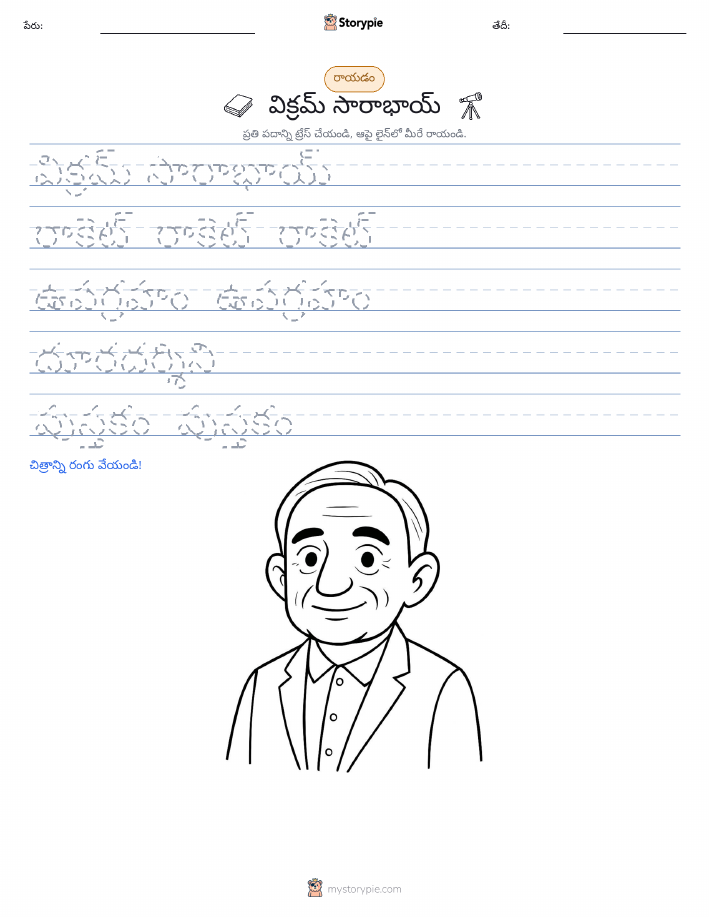 పేరు:
Storypie
తేదీ:
రాయడం
విక్రమ్ సారాభాయ్
ప్రతి పదాన్ని ట్రేస్ చేయండి, ఆపై లైన్‌లో మీరే రాయండి.
విక్రమ్ సారాభాయ్
రాకెట్ రాకెట్ రాకెట్
ఉపగ్రహం ఉపగ్రహం
దూరదర్శిని
పుస్తకం పుస్తకం
చిత్రాన్ని రంగు వేయండి!
mystorypie.com